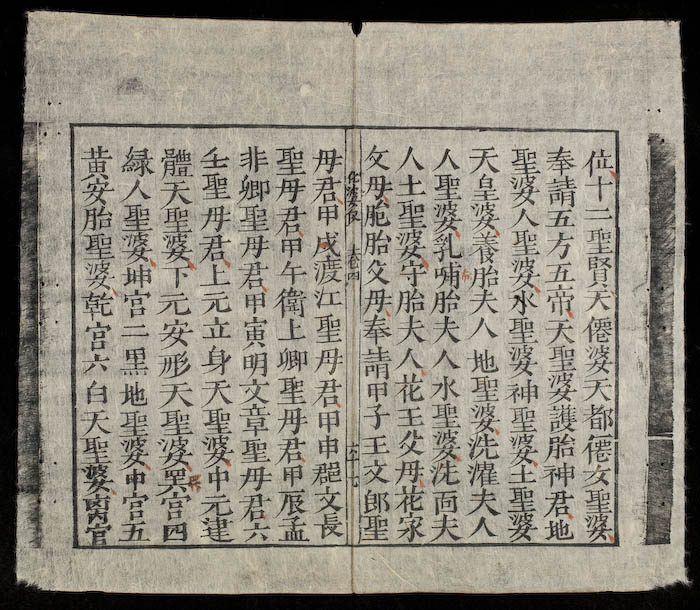 位十二聖賢天僊婆天都僊女聖婆
奉請五方五帝天聖婆護胎神君地
聖婆人聖婆水聖婆神聖婆土聖婆
天皇婆養胎夫人地聖婆洗濯夫人
人聖婆乳哺胎夫人水聖婆洗面夫
人土聖婆守胎夫人花王父母花家
父母胞胎父母奉請甲子王文郎聖
母君甲戍渡江聖母君甲申文長
聖母君甲午衛上卿聖母君甲辰孟
非卿聖母君甲寅明文章聖母君六
壬聖母君上元立身天聖婆中元建
體天聖婆下元安形天聖婆巽宮四
緑人聖婆坤宮二黒地聖婆中宮五
黃安胎聖婆乾宮六白天聖婆兑宮